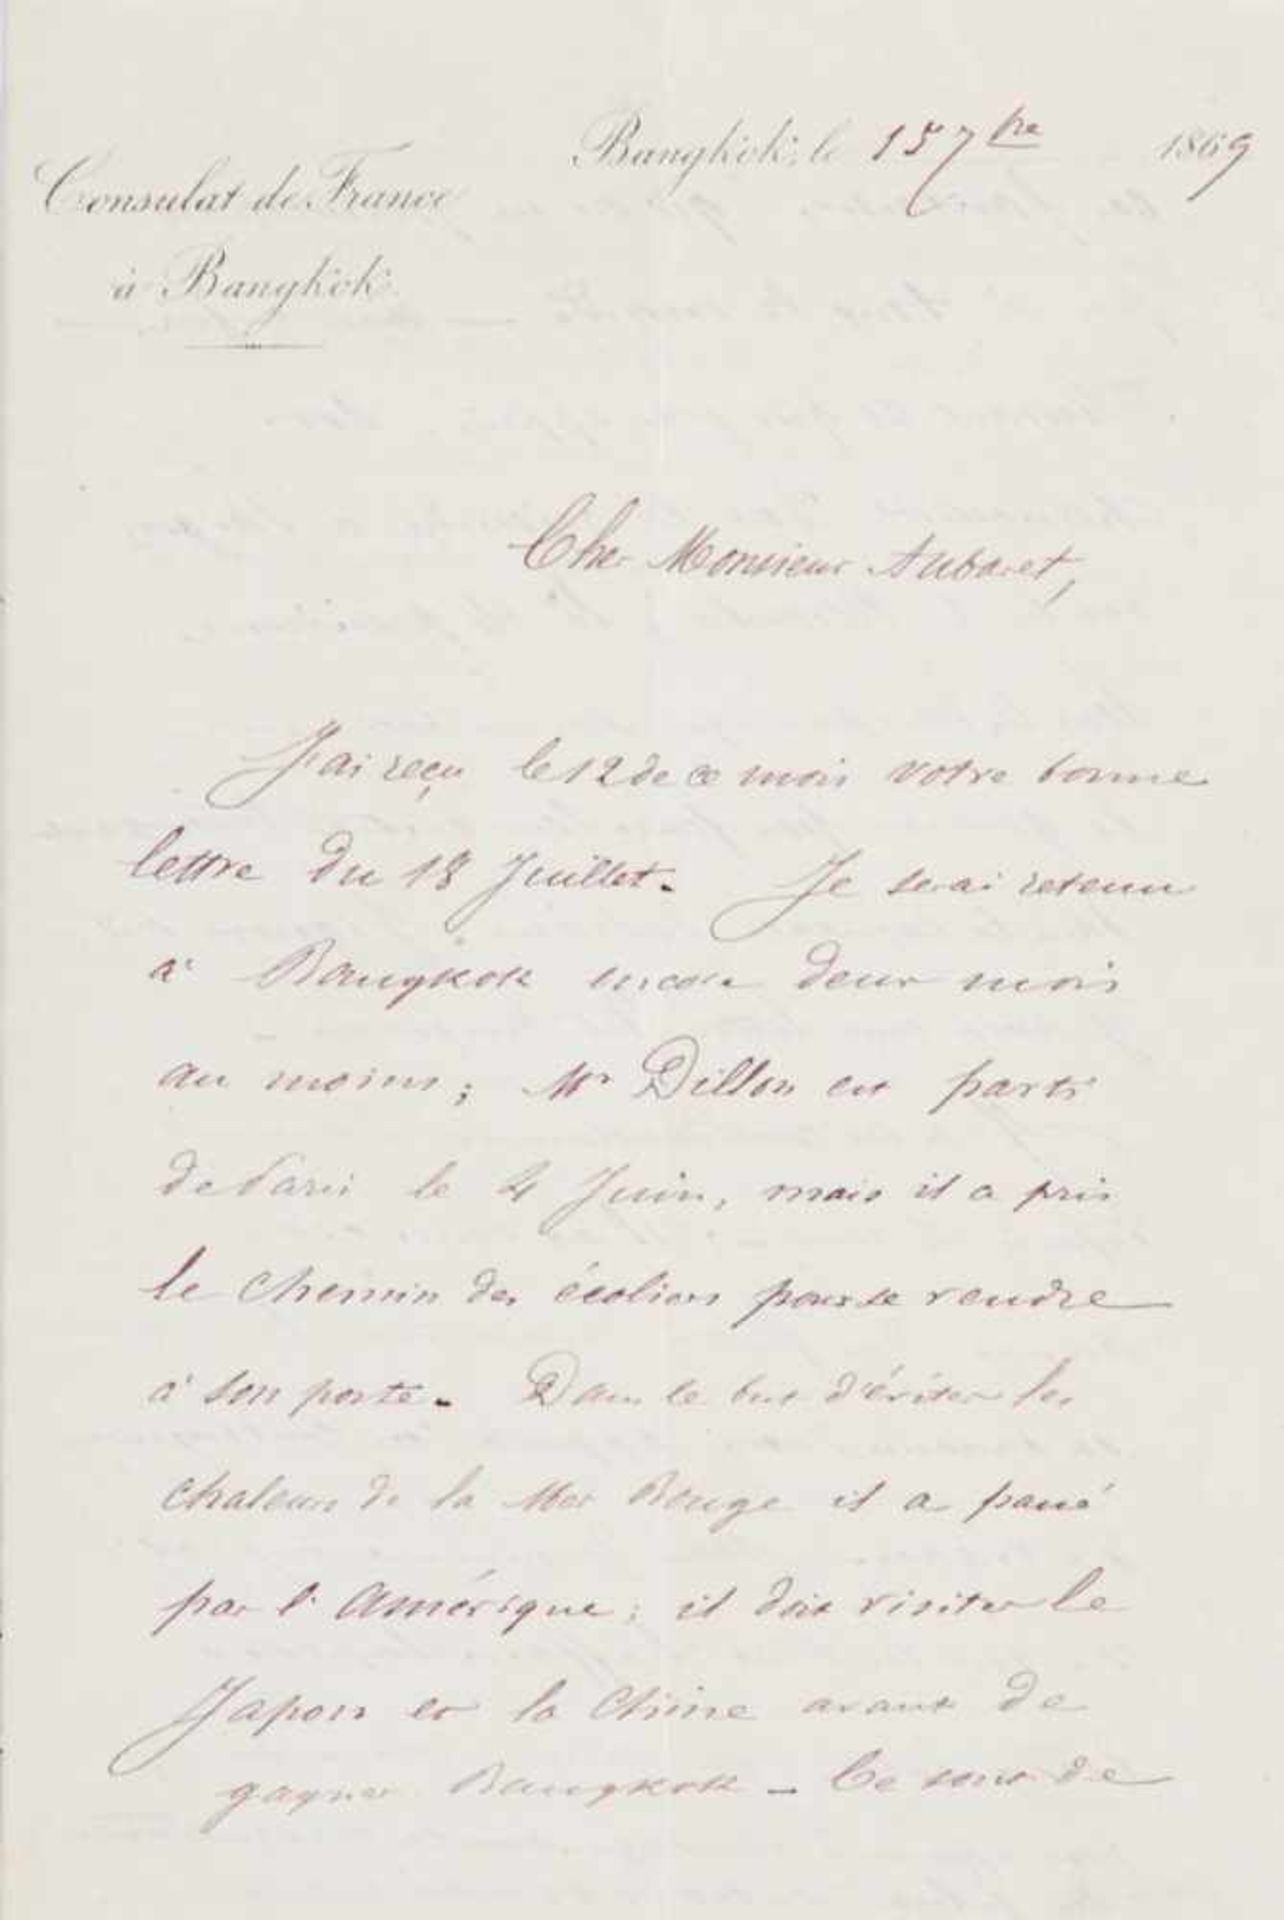 Bangkok, le 15 7bre 1869
Consulat de France
à Bangkok.
Cher Monsieur Aubaret,
J'ai reçu le 12 de ce mois votre bonne
lettre du 18 Juillet. Je serai retenu
à Bangkok encore deux mois
au moins ; Mr Dillon est parti
de Paris le 4 Juin, mais il a pris
le chemin des écoliers pour se rendre
à son poste. Dans le but d'éviter les
chaleurs de la Mer Rouge il a passé
par l'Amérique ; il doit visiter le
Japon et la Chine avant de
gagner Bangkok _ Ce sont de